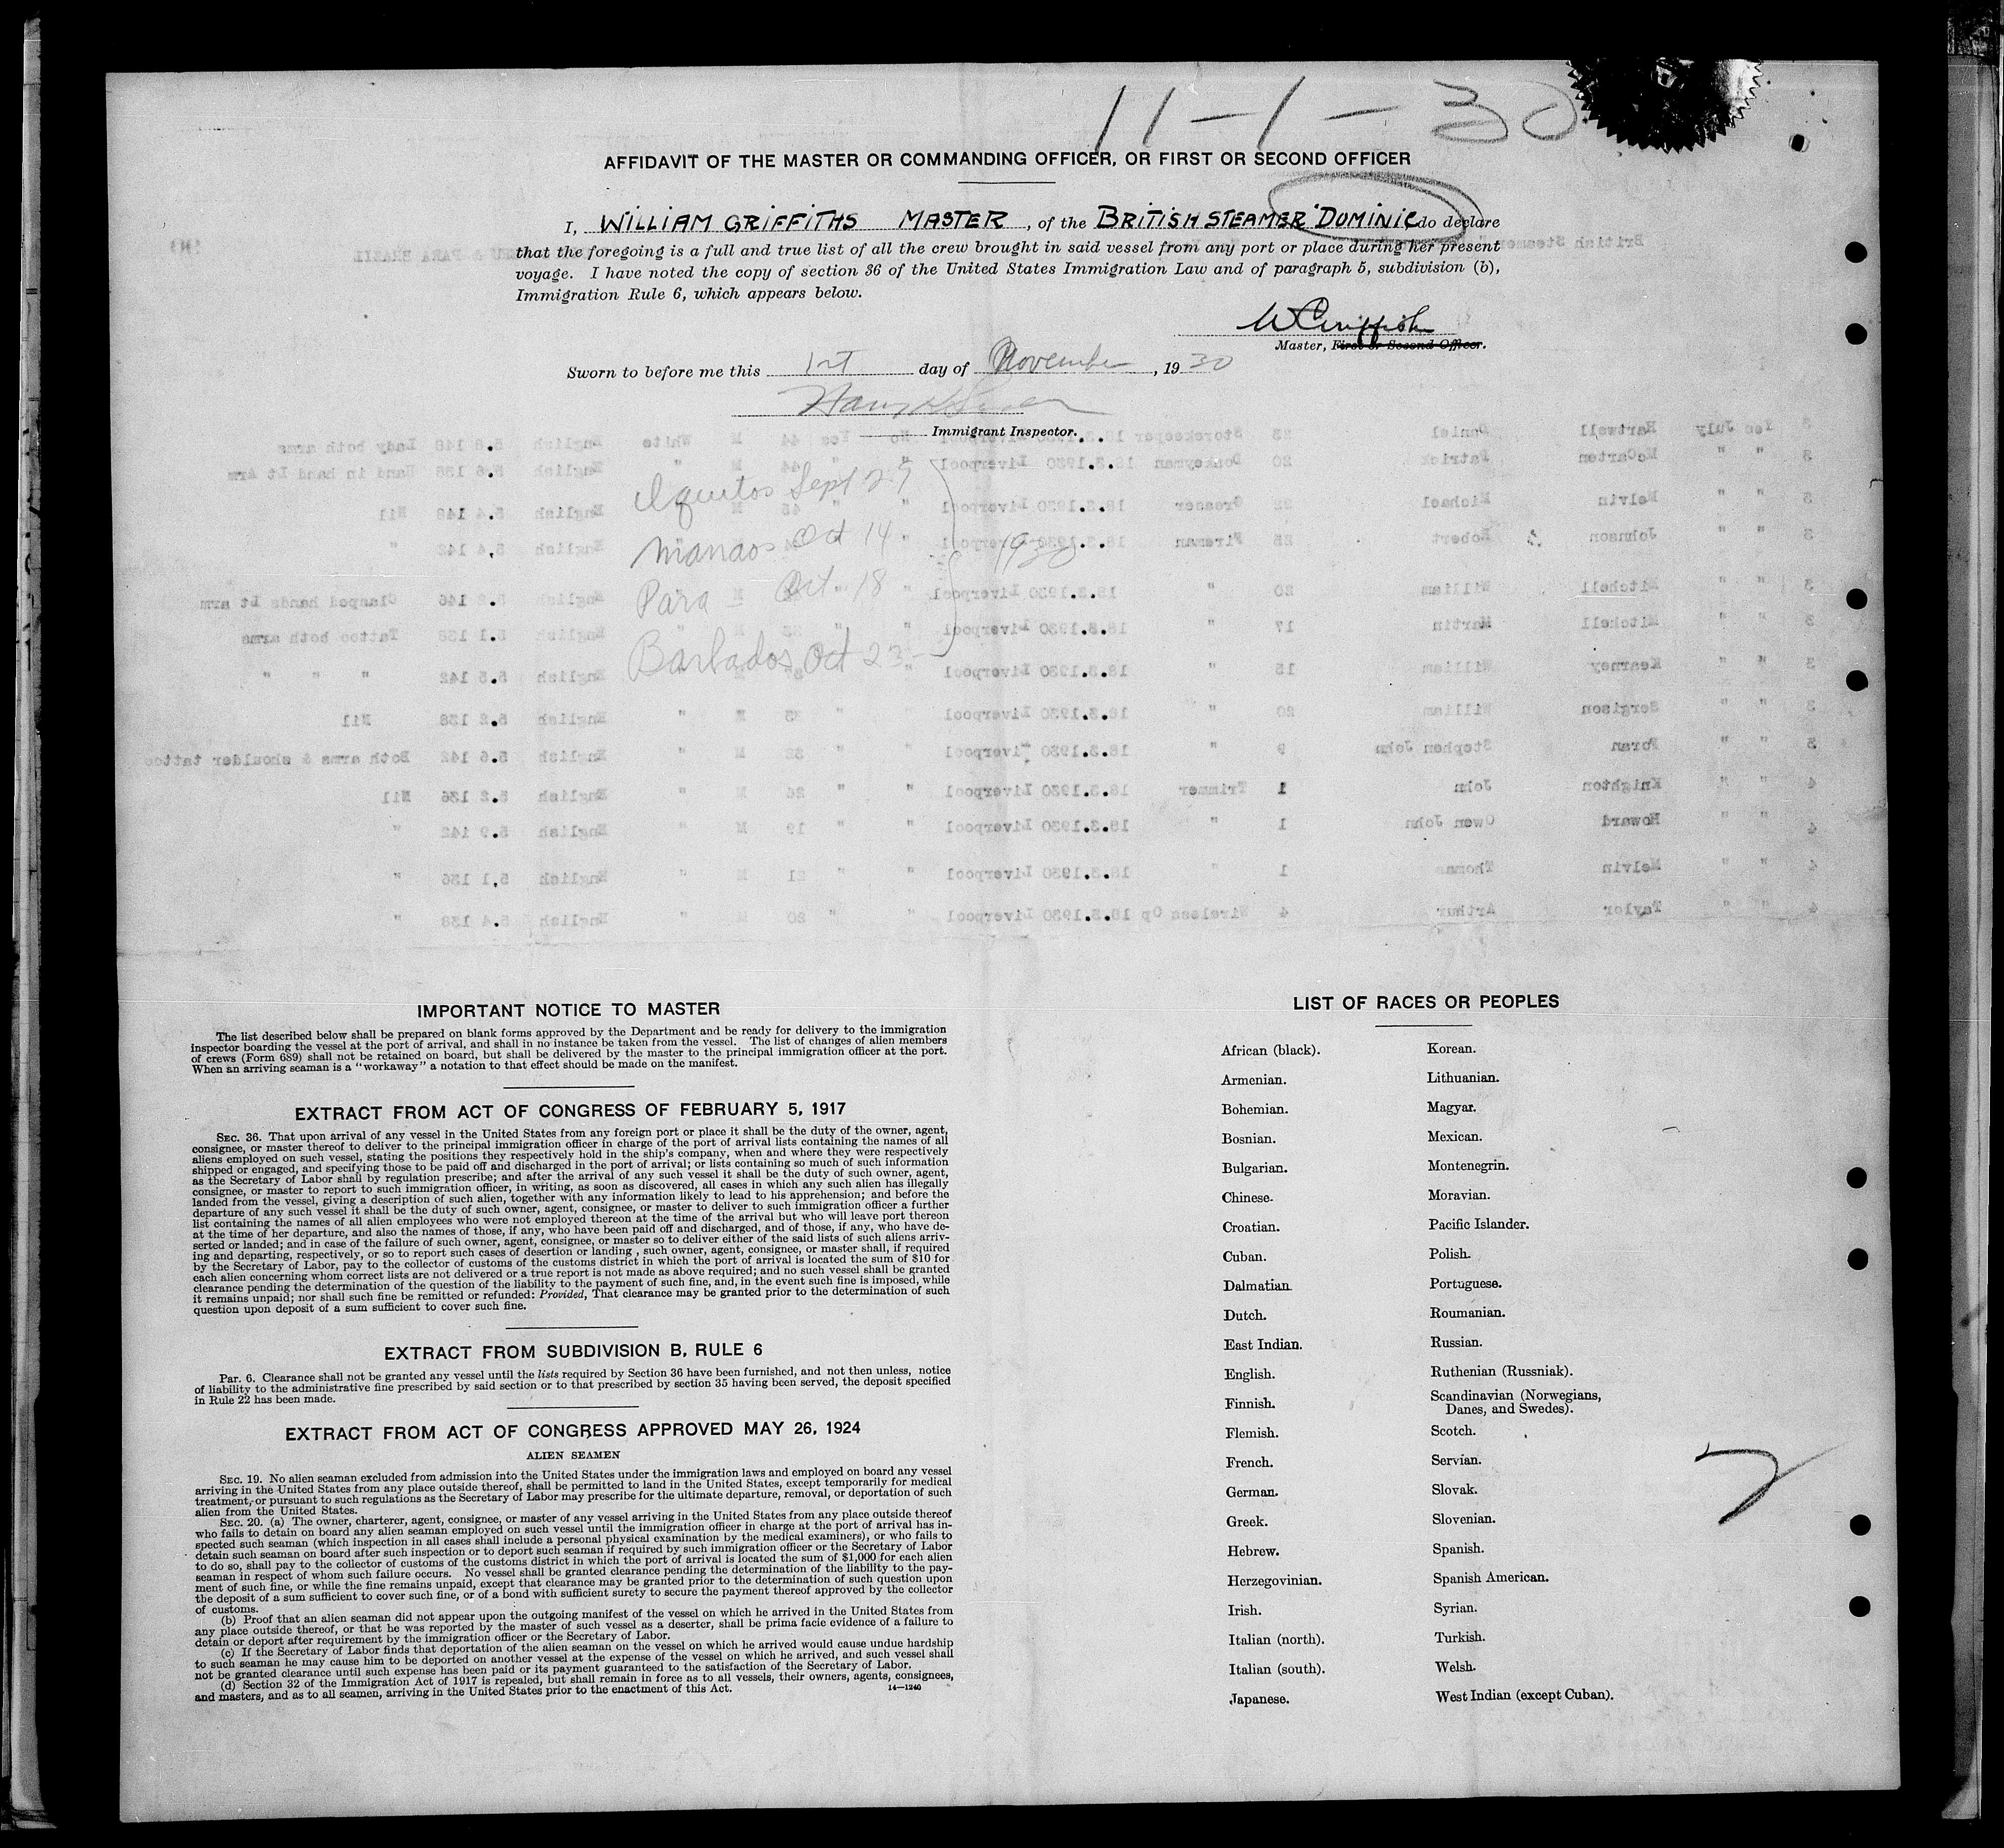 11-1-30
AFFIDAVIT OF THE MASTER OR COMMANDING OFFICER, OR FIRST OR SECOND OFFICER
I, WILLIAM GRIFFITHS MASTER, of the BRITISH STEAMER "DOMINIC do declare
that the foregoing is a full and true list of all the crew brought in said vessel from any port or place during her present
voyage. I have noted the copy of section 36 of the United States Immigration Law and of paragraph 5, subdivision (b),
Immigration Rule 6, which appears below.
W Griffiths
Master, First or Second Officer.
Sworn to before me this 1st day of November, 1930
Immigrant Inspector.
Iquitos Sept 29
Manaos Oct 14
1930
Para - Oct 18
Barbados Oct 23
IMPORTANT NOTICE TO MASTER
The list described below shall be prepared on blank forms approved by the Department and be ready for delivery to the immigration
inspector boarding the vessel at the port of arrival, and shall in no instance be taken from the vessel. The list of changes of alien members
of crews (Form 689) shall not be retained on board, but shall be delivered by the master to the principal immigration officer at the port.
When an arriving seaman is a "workaway" a notation to that effect should be made on the manifest.
EXTRACT FROM ACT OF CONGRESS OF FEBRUARY 5, 1917
SEC. 36. That upon arrival of any vessel in the United States from any foreign port or place it shall be the duty of the owner, agent,
consignee, or master thereof to deliver to the principal immigration officer in charge of the port of arrival lists containing the names of all
aliens employed on such vessel, stating the positions they respectively hold in the ship's company, when and where they were respectively
shipped or engaged, and specifying those to be paid off and discharged in the port of arrival; or lists containing so much of such information
as the Secretary of Labor shall by regulation prescribe; and after the arrival of any such vessel it shall be the duty of such owner, agent,
consignee, or master to report to such immigration officer, in writing, as soon as discovered, all cases in which any such alien has illegally
landed from the vessel, giving a description of such alien, together with any information likely to lead to his apprehension; and before the
departure of any such vessel it shall be the duty of such owner, agent, consignee, or master to deliver to such immigration officer a further
list containing the names of all alien employees who were not employed thereon at the time of the arrival but who will leave port thereon
at the time of her departure, and also the names of those, if any, who have been paid off and discharged, and of those, if any, who have de-
serted or landed; and in case of the failure of such owner, agent, consignee, or master so to deliver either of the said lists of such aliens arriv-
ing and departing, respectively, or so to report such cases of desertion or landing , such owner, agent, consignee, or master shall, if required
by the Secretary of Labor, pay to the collector of customs of the customs district in which the port of arrival is located the sum of $10 for
each alien concerning whom correct lists are not delivered or a true report is not made as above required; and no such vessel shall be granted
clearance pending the determination of the question of the liability to the payment of such fine, and, in the event such fine is imposed, while
it remains unpaid; nor shall such fine be remitted or refunded: Provided, That clearance may be granted prior to the determination of such
question upon deposit of a sum sufficient to cover such fine.
EXTRACT FROM SUBDIVISION B, RULE 6
Par. 6. Clearance shall not be granted any vessel until the lists required by Section 36 have been furnished, and not then unless, notice
of liability to the administrative fine prescribed by said section or to that prescribed by section 35 having been served, the deposit specified
in Rule 22 has been made.
EXTRACT FROM ACT OF CONGRESS APPROVED MAY 26, 1924
ALIEN SEAMEN
SEC. 19. No alien seaman excluded from admission into the United States under the immigration laws and employed on board any vessel
arriving in the United States from any place outside thereof, shall be permitted to land in the United States, except temporarily for medical
treatment, or pursuant to such regulations as the Secretary of Labor may prescribe for the ultimate departure, removal, or deportation of such
alien from the United States.
SEC. 20. (a) The owner, charterer, agent, consignee, or master of any vessel arriving in the United States from any place outside thereof
who fails to detain on board any alien seaman employed on such vessel until the immigration officer in charge at the port of arrival has in-
spected such seaman (which inspection in all cases shall include a personal physical examination by the medical examiners), or who fails to
detain such seaman on board after such inspection or to deport such seaman if required by such immigration officer or the Secretary of Labor
to do so, shall pay to the collector of customs of the customs district in which the port of arrival is located the sum of $1,000 for each alien
seaman in respect of whom such failure occurs. No vessel shall be granted clearance pending the determination of the liability to the pay-
ment of such fine, or while the fine remains unpaid, except that clearance may be granted prior to the determination of such question upon
the deposit of a sum sufficient to cover such fine, or of a bond with sufficient surety to secure the payment thereof approved by the collector
of customs.
(b) Proof that an alien seaman did not appear upon the outgoing manifest of the vessel on which he arrived in the United States from
any place outside thereof, or that he was reported by the master of such vessel as a deserter, shall be prima facie evidence of a failure to
detain or deport after requirement by the immigration officer or the Secretary of Labor.
(c) If the Secretary of Labor finds that deportation of the alien seaman on the vessel on which he arrived would cause undue hardship
to such seaman he may cause him to be deported on another vessel at the expense of the vessel on which he arrived, and such vessel shall
not be granted clearance until such expense has been paid or its payment guaranteed to the satisfaction of the Secretary of Labor.
(d) Section 32 of the Immigration Act of 1917 is repealed, but shall remain in force as to all vessels, their owners, agents, consignees,
and masters, and as to all seamen, arriving in the United States prior to the enactment of this Act.
14—1240
LIST OF RACES OR PEOPLES
African (black).
Armenian.
Bohemian.
Bosnian.
Bulgarian.
Chinese.
Croatian.
Cuban.
Dalmatian.
Dutch.
East Indian.
English.
Finnish.
Flemish.
French.
German.
Greek.
Hebrew.
Herzegovinian.
Irish.
Italian (north).
Italian (south).
Japanese.
Korean.
Lithuanian.
Magyar.
Mexican.
Montenegrin.
Moravian.
Pacific Islander.
Polish.
Portuguese.
Roumanian.
Russian.
Ruthenian (Russniak).
Scandinavian (Norwegians,
Danes, and Swedes).
Scotch.
Servian.
Slovak.
Slovenian.
Spanish.
Spanish American.
Syrian.
Turkish.
Welsh.
West Indian (except Cuban).